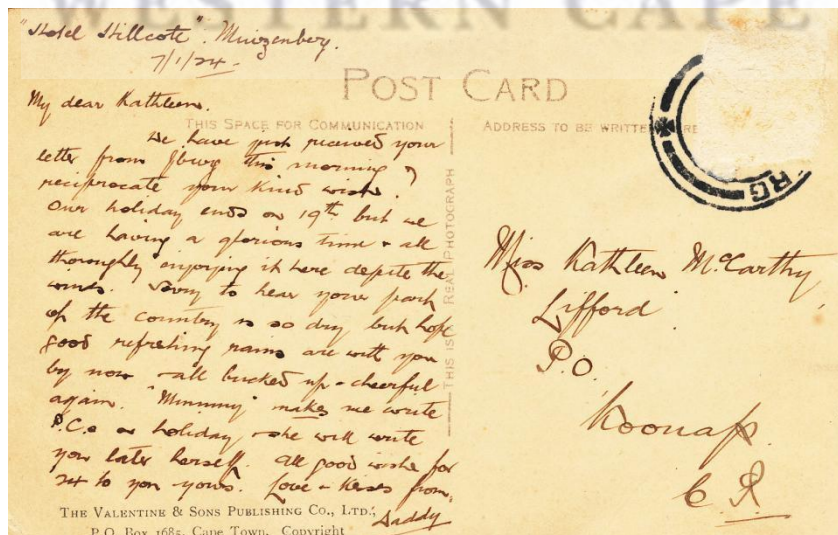 WESTERN CAPE
"Hotel Hillcote". Muizenberg.
7/1/24.
POST CARD
THIS SPACE FOR COMMUNICATION
ADDRESS TO BE WRITTEN
My dear Kathleen.
We have just received your
letter from Jburg this morning &
reciprocate your kind wishes.
Our holiday ends on 19th but we
are having a glorious time & all
thoroughly enjoying it here depite the
winds. Sorry to hear your part
of the country is so dry but hope
good refreshing rains are with you
by now & all bucked up & cheerful
again. "Mummy" makes me write
P.C.s on holiday & she will write
you later herself. All good wishes for
24 to you & yours. Love & kisses from
Daddy
THIS IS A REAL PHOTOGRAPH
RG
Miss Kathleen McCarthy
Lifford
P.O.
Koonap
C.P.
THE VALENTINE & SONS PUBLISHING CO., LTD.,
P.O. Box 1685, Cape Town. Copyright